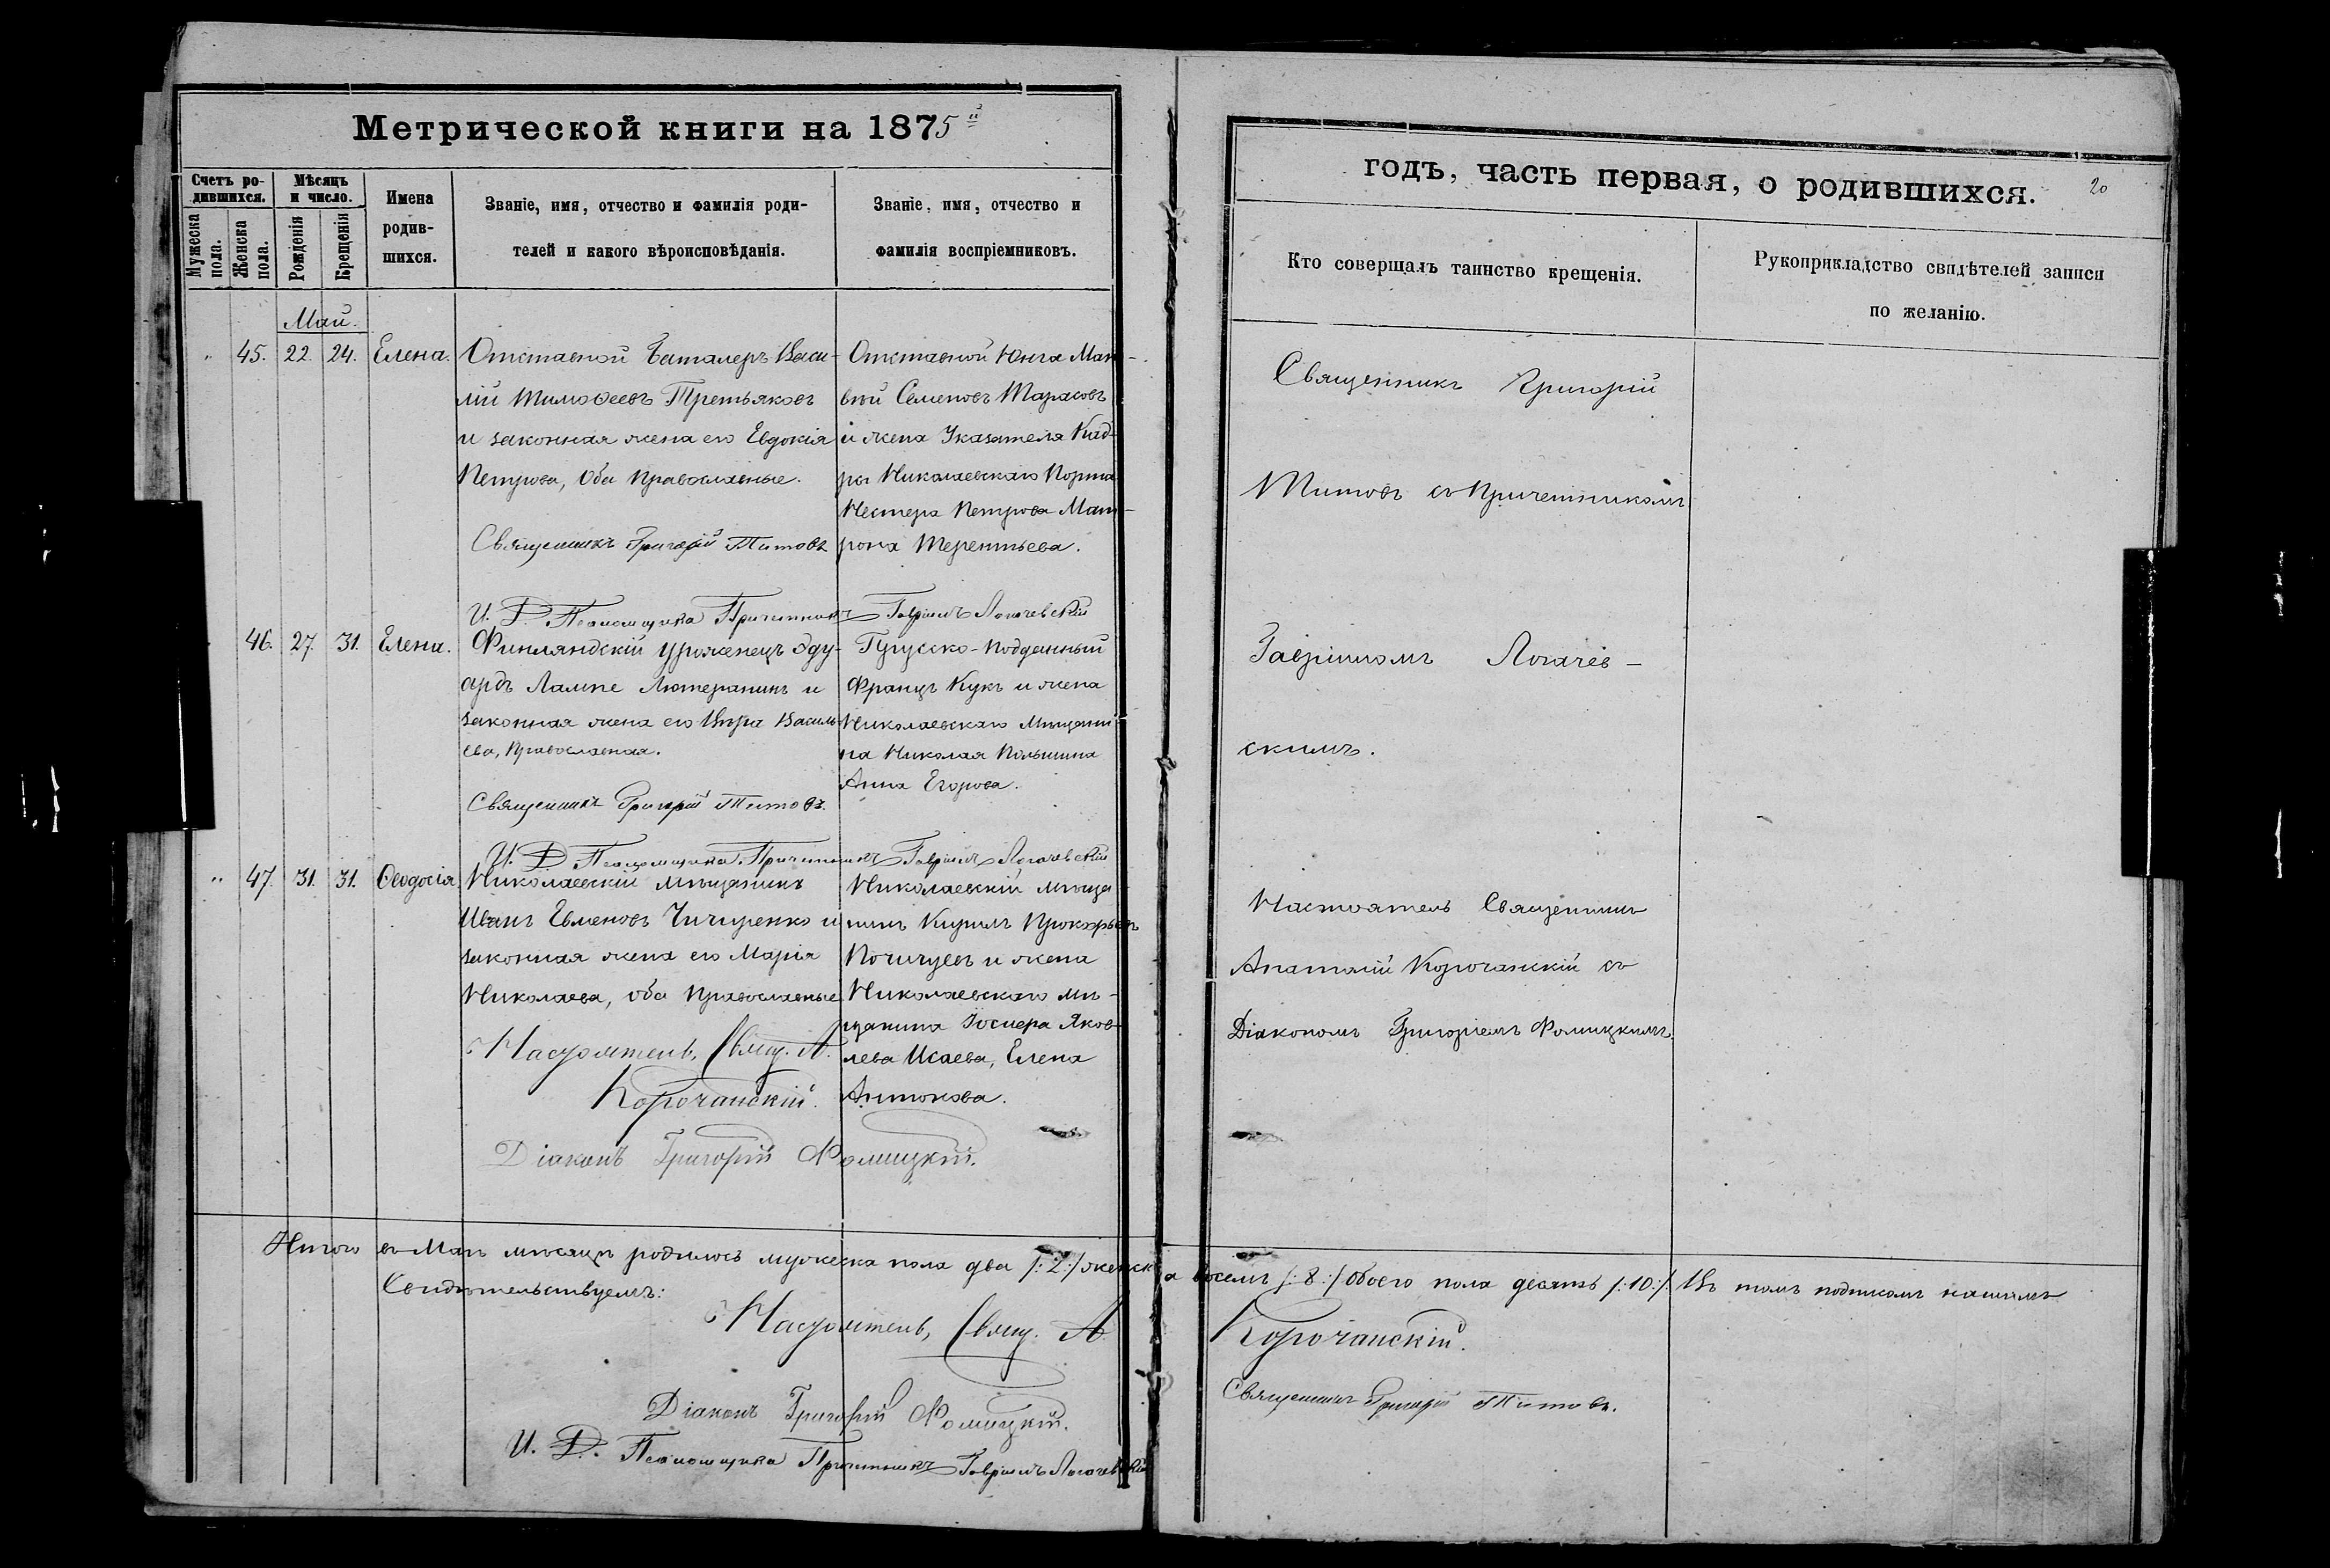 Метрической книги на 1875й
Счетъ ро-
дившихся.
Мѣсяцъ
и число.
Мужеска
пола.
Женска
пола.
Рожденія
Крещенія
Имена
родив-
шихся.
Званіе, имя, отчество и фамилія роди-
телей и какого вѣроисповѣданія.
Званіе, имя, отчество и
фамилія воспріемниковъ.
Май.
" 45. 22. 24. Елена.
Отставной Баталеръ Васи-
лій Тимоѳеевъ Третьяковъ
и законная жена его Евдокія
Петрова, Оба Православные.
Священникъ Григорій Титовъ
Отставной Юнга Мат-
вѣй Семеновъ Тарасовъ
и жена Указателя Кад-
ры Николаевскаго Порта
Нестера Петрова Мат-
рона Терентьева.
И. Д. Псаломщика Причетникъ Гавріилъ Логачевскій
46. 27. 31. Елена.
Финляндскій уроженецъ Эду-
ардъ Лампе Лютеранинъ и
законная жена его Вѣра Василь-
ева, Православная.
Священникъ Григорій Титовъ.
Прусско-подданный
Францъ Кукъ и жена
Николаевскаго Мѣщани-
на Николая Польшина
Анна Егорова.
И. Д. Псаломщика Причетникъ Гавріилъ Логачевскій
" 47. 31. 31. Ѳеодосія
Николаевскій мѣщанинъ
Иванъ Евменовъ Чичиренко и
законная жена его Марія
Николаева, оба Православные
Настоятель, Свящ. А.
Корочанскій.
Николаевскій мѣща
нинъ Кирилъ Прокофьевъ
Почируевъ и жена
Николаевскаго мѣ-
щанина Яков-
лева Исаева, Елена
Антонова.
Діаконъ Григорій Фомицкій.
Итого въ Маѣ мѣсяцѣ родилось мужеска пола два /:2:/ женска восемь /:8:/ Обоего пола десять /:10:/ Въ томъ подписомъ нашимъ
Свидѣтельствуемъ:
Настоятель, Свящ. А. Корочанскій.
Діаконъ Григорій Фомицкій.
И. Д. Псаломщика Причетникъ Гавріилъ Логачевскій
годъ, часть первая, о родившихся.
20
Кто совершалъ таинство крещенія.
Рукоприкладство свидѣтелей записи
по желанію.
Священникъ Григорій
Титовъ съ Причетникомъ
Гавріиломъ Логачев-
скимъ.
Настоятель Священникъ
Анатолій Корочанскій съ
Діакономъ Григоріемъ Фомицкимъ.
Священникъ Григорій Титовъ.